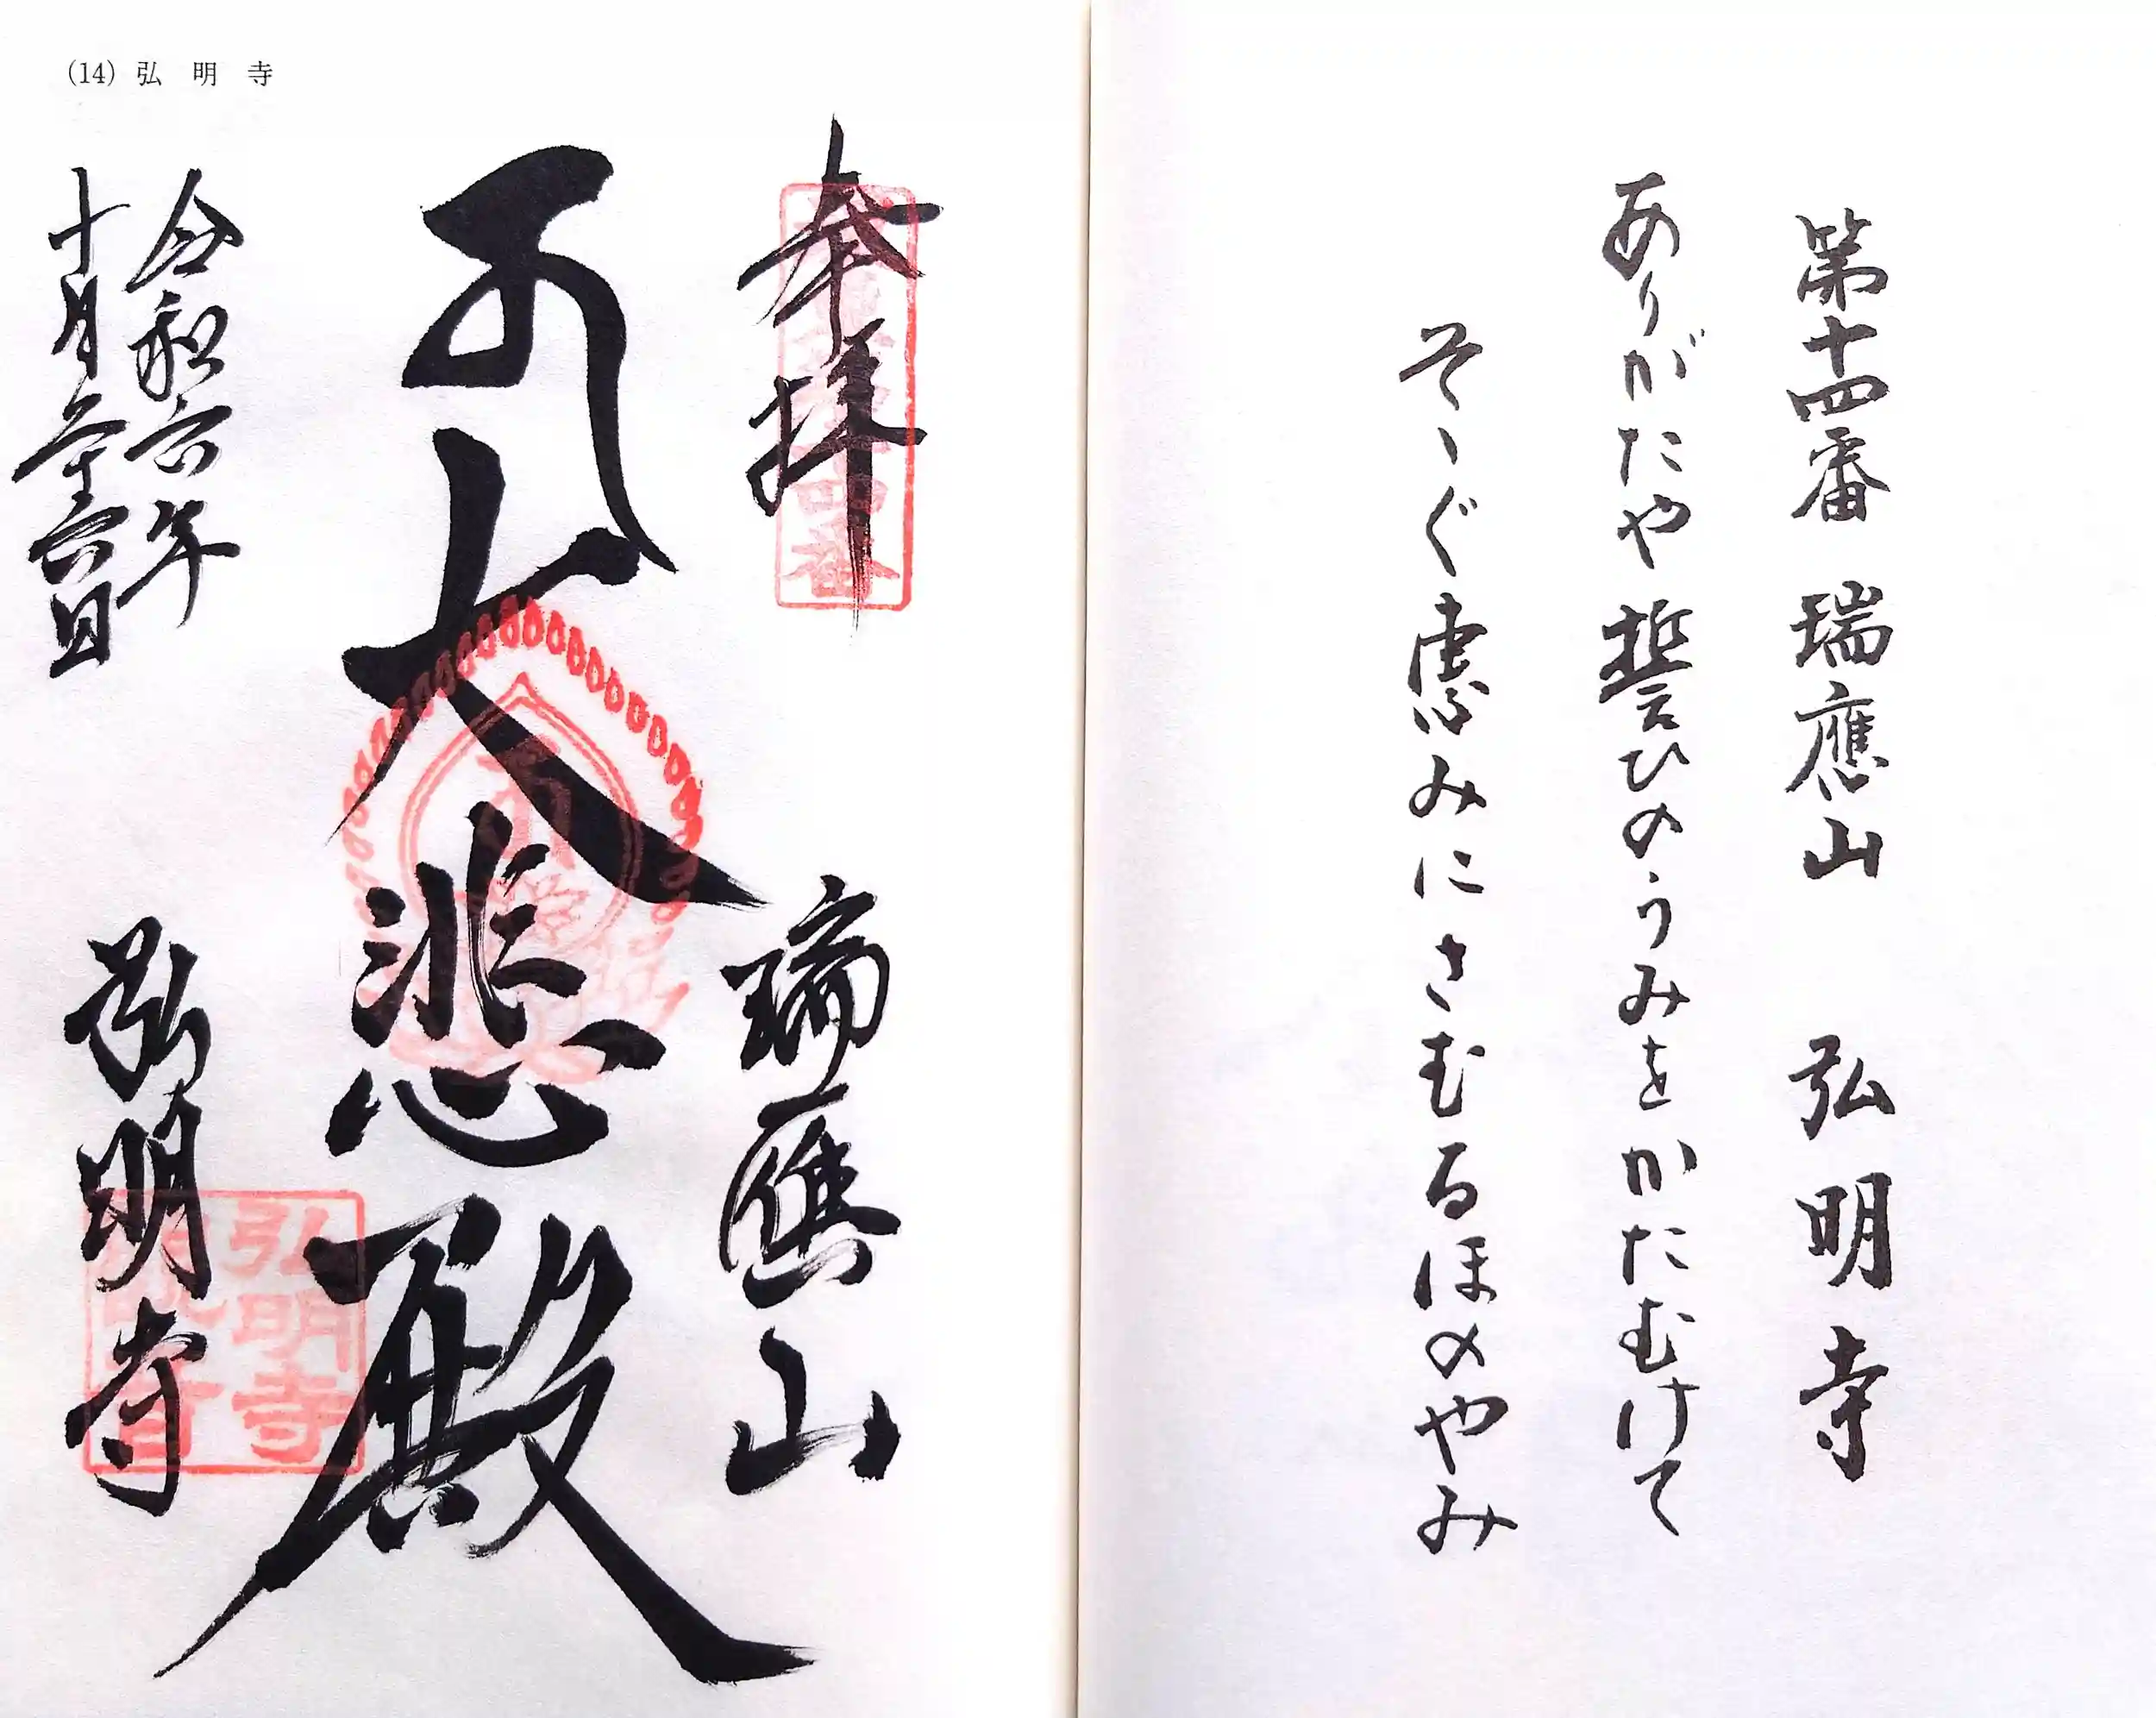 第十四番 瑞應山 弘明寺
ありがたや誓ひのうみをかたむけて
そゝぐ恵みにさむるほのやみ
(14) 弘明寺
奉拝
瑞應山
大悲殿
令和六年
十月二十六日
弘明寺
弘明寺